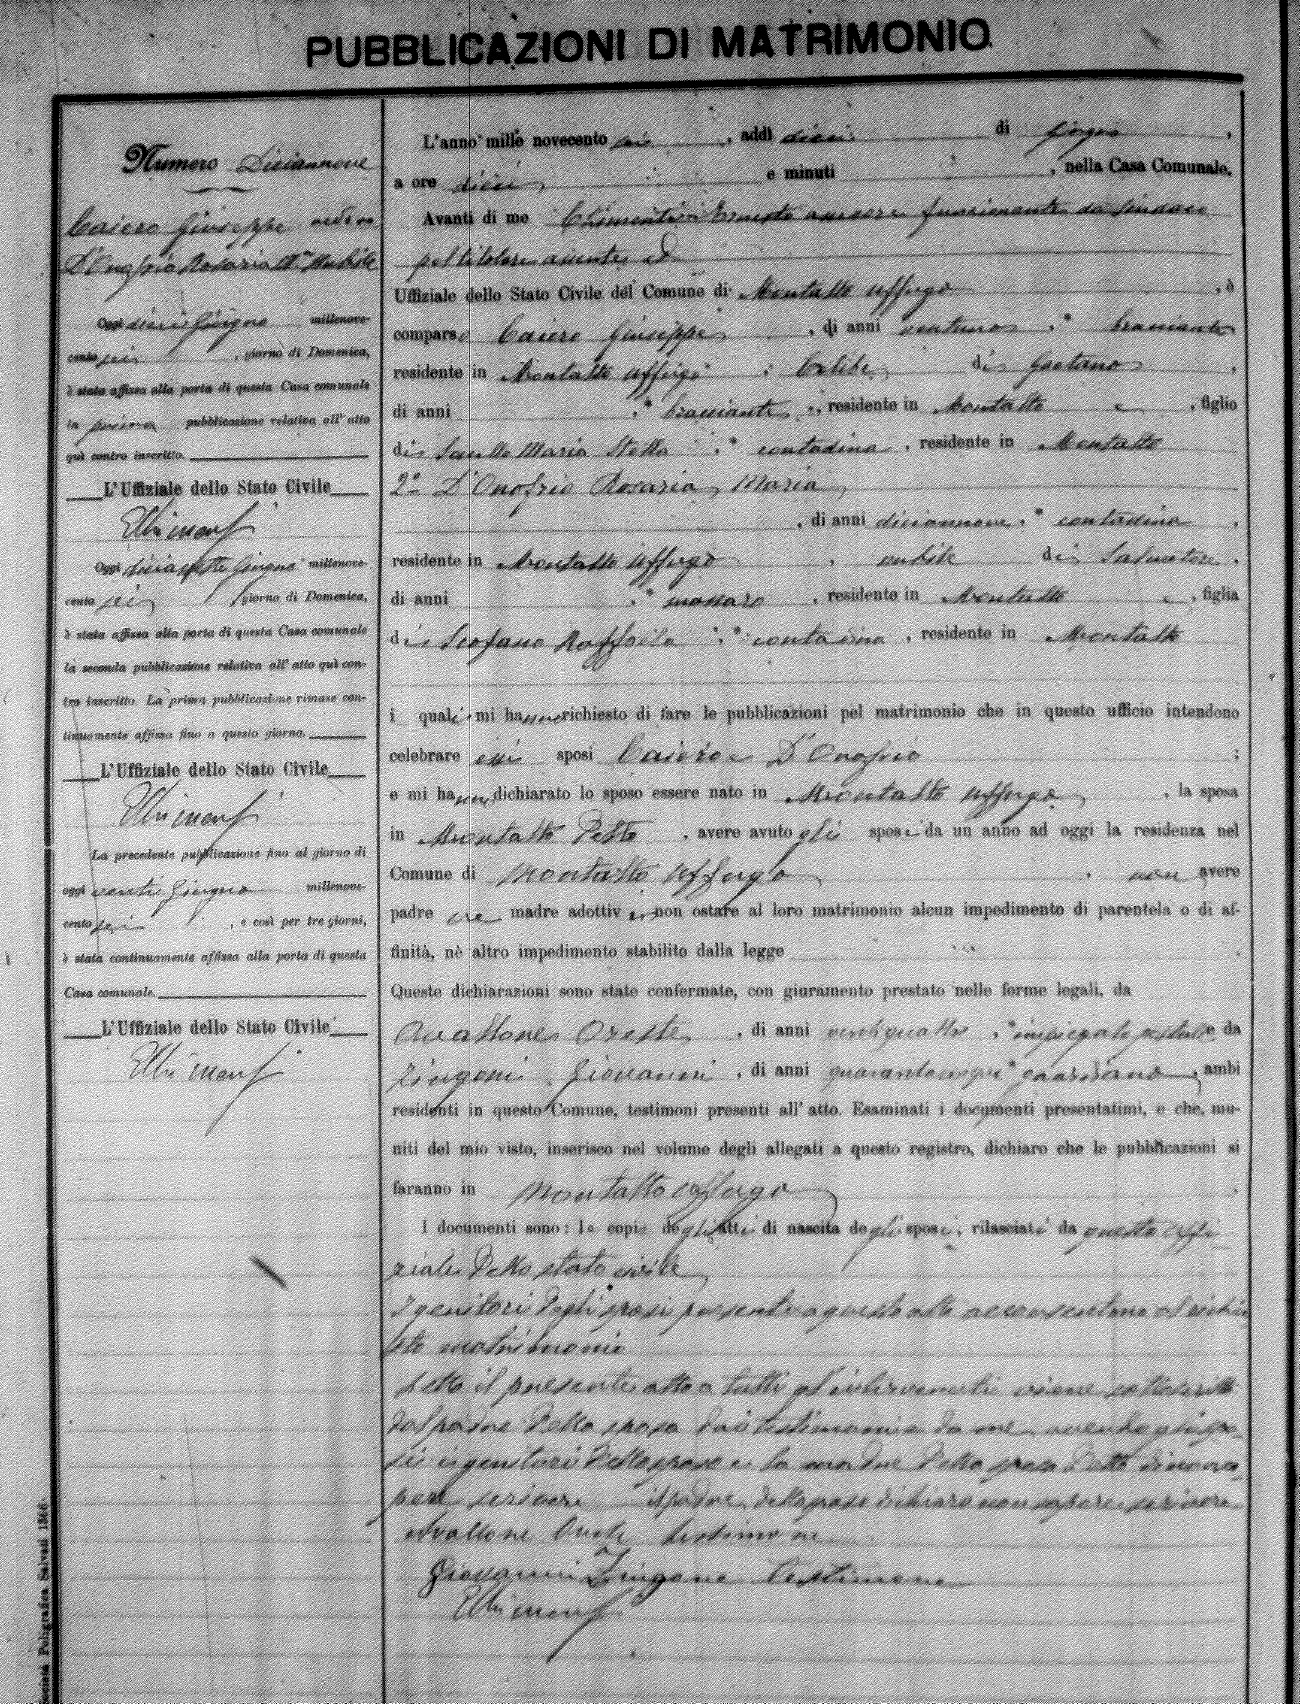 PUBBLICAZIONI DI MATRIMONIO
Numero Diciannove
Caiero Giuseppe
D'Onofrio Rosaria Mª Nubile
Oggi dieci Giugno millenove-
cento sei, giorno di Domenica,
è stata affissa alla porta di questa Casa comunale
la prima pubblicazione relativa all'atto
quì contro inscritto.
L'Uffiziale dello Stato Civile
Oggi diciasette Giugno millenove-
cento sei, giorno di Domenica,
è stata affissa alla porta di questa Casa comunale
la seconda pubblicazione relativa all'atto quì con-
tro inscritto. La prima pubblicazione rimase con-
tinuamente affissa fino a questo giorno.
L'Uffiziale dello Stato Civile
La precedente pubblicazione fino al giorno di
oggi venti Giugno millenove-
cento sei, e così per tre giorni,
è stata continuamente affissa alla porta di questa
Casa comunale.
L'Uffiziale dello Stato Civile
L'anno mille novecento sei, addì dieci di Giugno,
a ore dieci e minuti , nella Casa Comunale.
Avanti di me Ernesto assessore funzionante da Sindaco
pel titolare assente
Uffiziale dello Stato Civile del Comune di Montalto Uffugo, è
comparso Caiero Giuseppe, di anni ventuno, bracciante
residente in Montalto Uffugo, Celibe di Gaetano,
di anni , bracciante, residente in Montalto, figlio
di Maria Stella, contadina, residente in Montalto
2º D'Onofrio Rosaria, Maria,
, di anni diciannove, contadina,
residente in Montalto Uffugo, nubile di Salvatore,
di anni , massaro, residente in Montalto, figlia
di Scofano Raffaela, contadina, residente in Montalto
i quali mi hanno richiesto di fare le pubblicazioni pel matrimonio che in questo ufficio intendono
celebrare essi sposi Caiero e D'Onofrio;
e mi hanno dichiarato lo sposo essere nato in Montalto Uffugo, la sposa
in Montalto Detto, avere avuto gli sposi da un anno ad oggi la residenza nel
Comune di Montalto Uffugo, non avere
padre nè madre adottivi, non ostare al loro matrimonio alcun impedimento di parentela o di af-
finità, nè altro impedimento stabilito dalla legge.
Queste dichiarazioni sono state confermate, con giuramento prestato nelle forme legali, da
Avallone Oreste, di anni ventiquattro, impiegato postale e da
Zingone Giovanni, di anni quarantacinque guardiano, ambi
residenti in questo Comune, testimoni presenti all'atto. Esaminati i documenti presentatimi, e che, mu-
niti del mio visto, inserisco nel volume degli allegati a questo registro, dichiaro che le pubblicazioni si
faranno in Montalto Uffugo.
I documenti sono: le copie degli atti di nascita degli sposi, rilasciati da questo uffi
ziale dello stato civile
I genitori degli sposi presenti a questo atto acconsentono al richie
sto matrimonio
Letto il presente atto a tutti gl'intervenuti viene sottoscritto
dal padre della sposa dai testimoni e da me avendo gli spo
si i genitori dello sposo e la madre della sposa detto di non sa
pere scrivere il padre della sposa dichiara non sapere scrivere
Avallone Oreste testimone
Giovanni Zingone Testimone
Società Poligrafica Salvati 1906